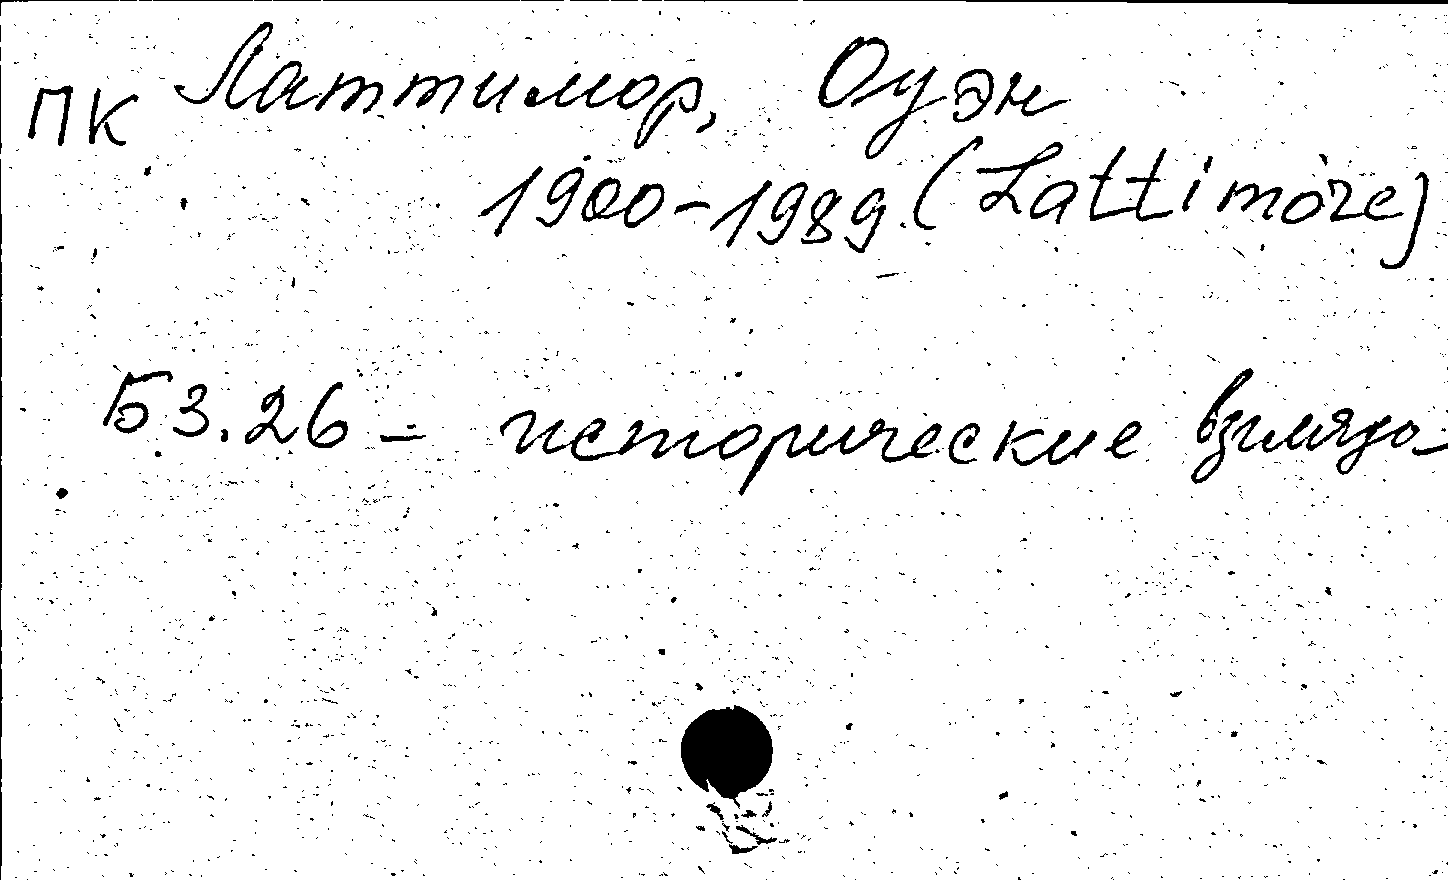 ПК Латтимор, Оуэн
1900-1989. (Lattimore)
Б3.26 - исторические взгляды